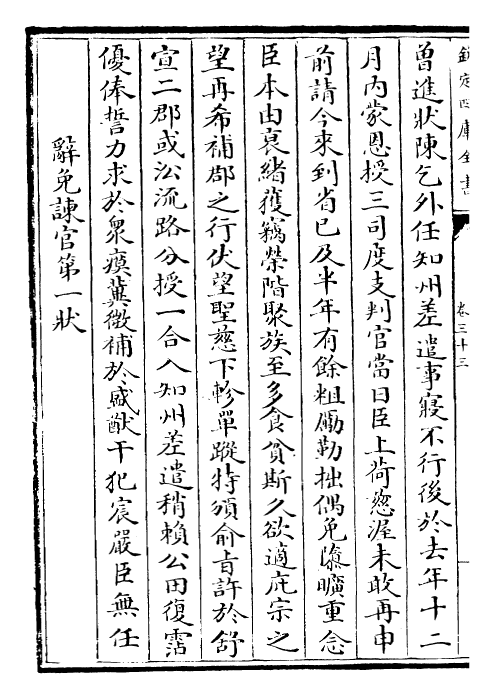 欽定四庫全書
卷三十三
曽進狀陳乞外任知州差遣事寢不行後於去年十二
月内蒙恩授三司度支判官當日臣上荷慈渥未敢再申
前請今來到省已及半年有餘粗勵勤拙偶免隳曠重念
臣本由裒緒獲竊榮階聚族至多食貧斯久欲適庇宗之
望再希補郡之行伏望聖慈下軫單蹤特頒俞㫖許於舒
宣二郡或㳂流路分授一合入知州差遣稍賴公田復霑
優俸誓力求於衆瘼冀微補於盛猷干犯宸嚴臣無任
辭免諫官第一狀